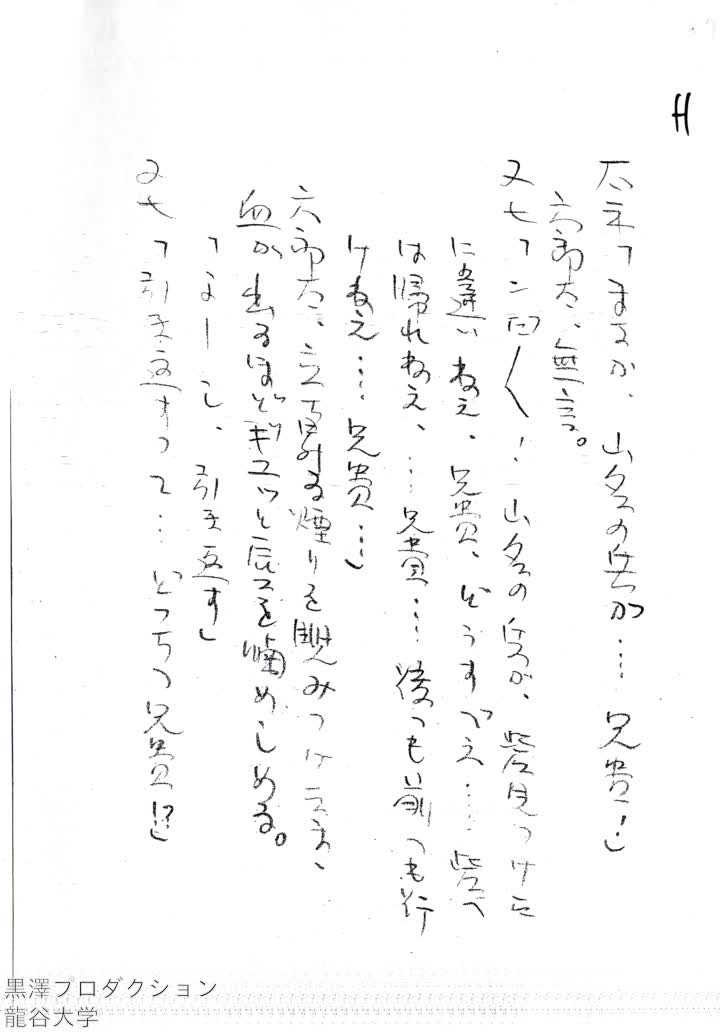 H
太平「まさか、山名の兵が…兄貴!」
六郎太、無言。
又七「ン因〱!山名の兵が、砦見つけた
に違いねえ、兄貴、どうすべえ……砦へ
は帰れねえ、…兄貴…後へも前へも行
けねえ…兄貴…」
六郎太、立ち昇る煙りを睨みつけたまゝ、
血が出るほどギュッと唇を噛めしめる。
「よーし、引き返す」
又七「引き返すって…どっちへ兄貴!?」
黒澤プロダクション
龍谷大学